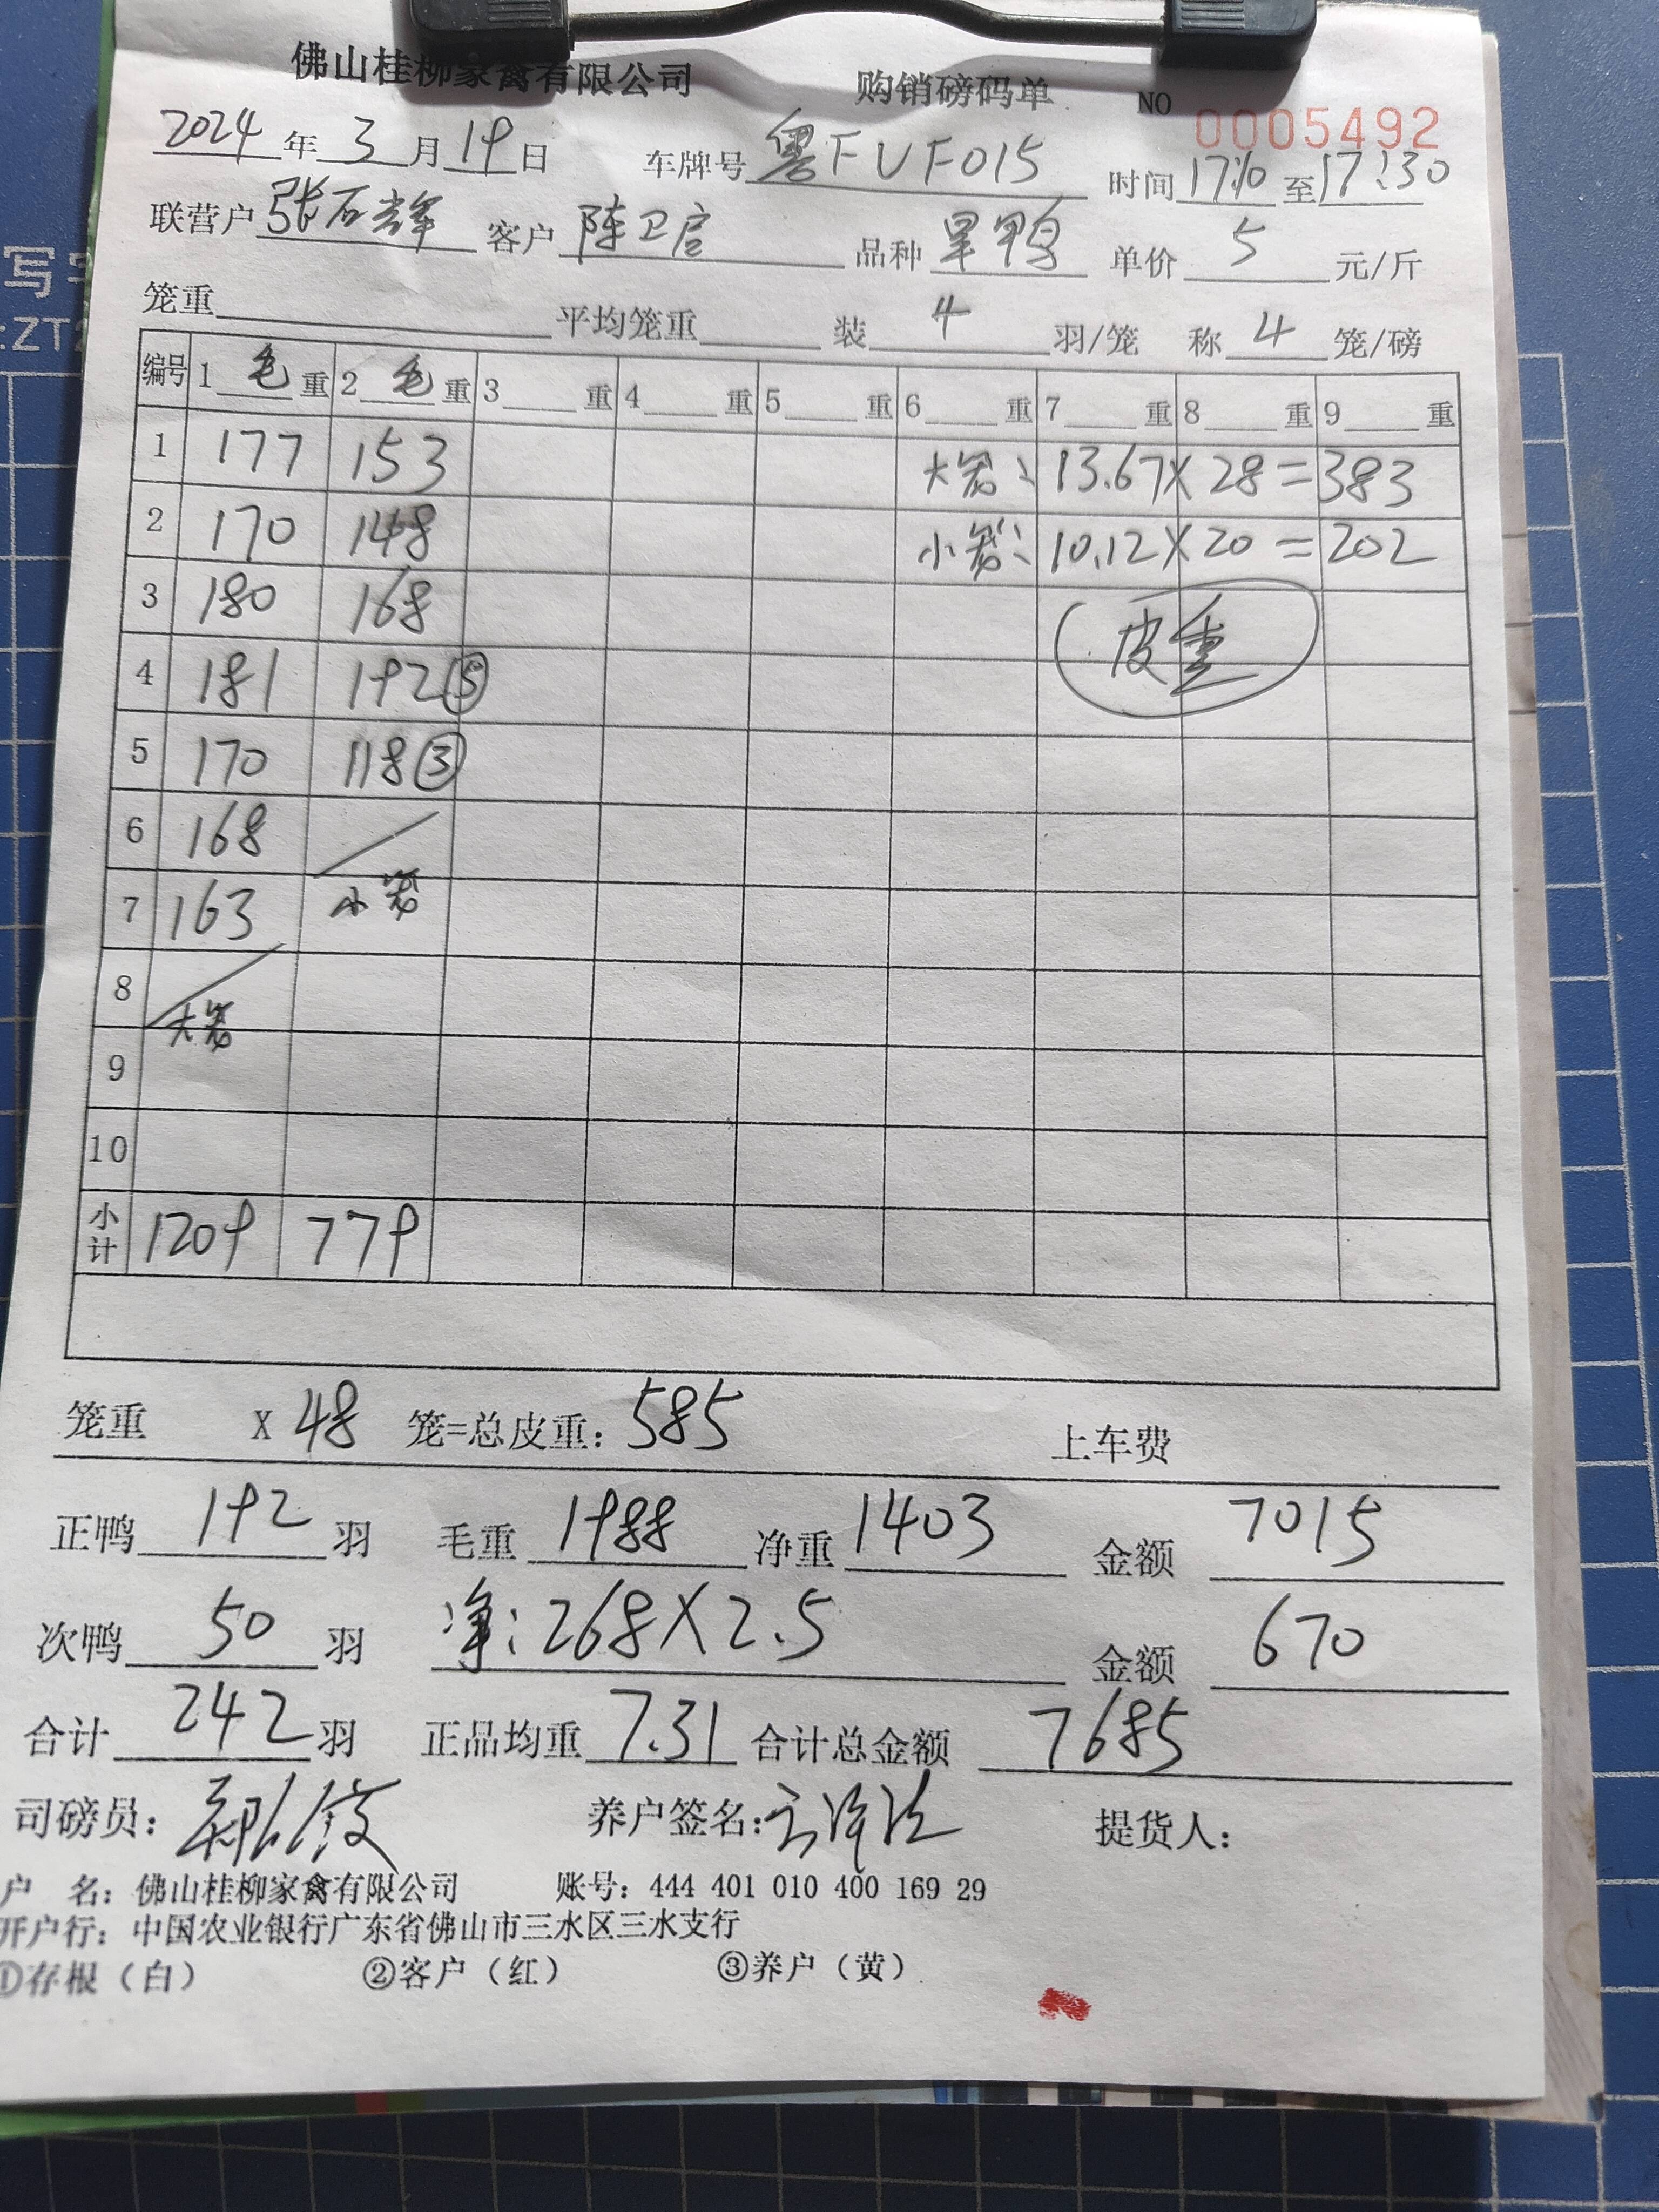 佛山桂柳家禽有限公司 购销磅码单 NO 0005492
2024年3月19日 车牌号 粤FUF015 时间 17:10 至 17:30
联营户 张石辉 客户 陈卫启 品种 旱鸭 单价 5 元/斤
笼重 平均笼重 装 4 羽/笼 称 4 笼/磅
编号 1 毛 重 2 毛 重 3 重 4 重 5 重 6 重 7 重 8 重 9 重
1 177 153 大笼: 13.67X28=383
2 170 148 小笼: 10.12X20=202
3 180 168 皮重
4 181 192⑤
5 170 118③
6 168
7 163 小笼
8 大笼
9
10
小计 1209 779
笼重 X 48 笼=总皮重: 585 上车费
正鸭 192 羽 毛重 1988 净重 1403 金额 7015
次鸭 50 羽 净: 268X2.5 金额 670
合计 242 羽 正品均重 7.31 合计总金额 7685
司磅员: 养户签名: 提货人:
户 名: 佛山桂柳家禽有限公司 账号: 444 401 010 400 169 29
开户行: 中国农业银行广东省佛山市三水区三水支行
①存根(白) ②客户(红) ③养户(黄)